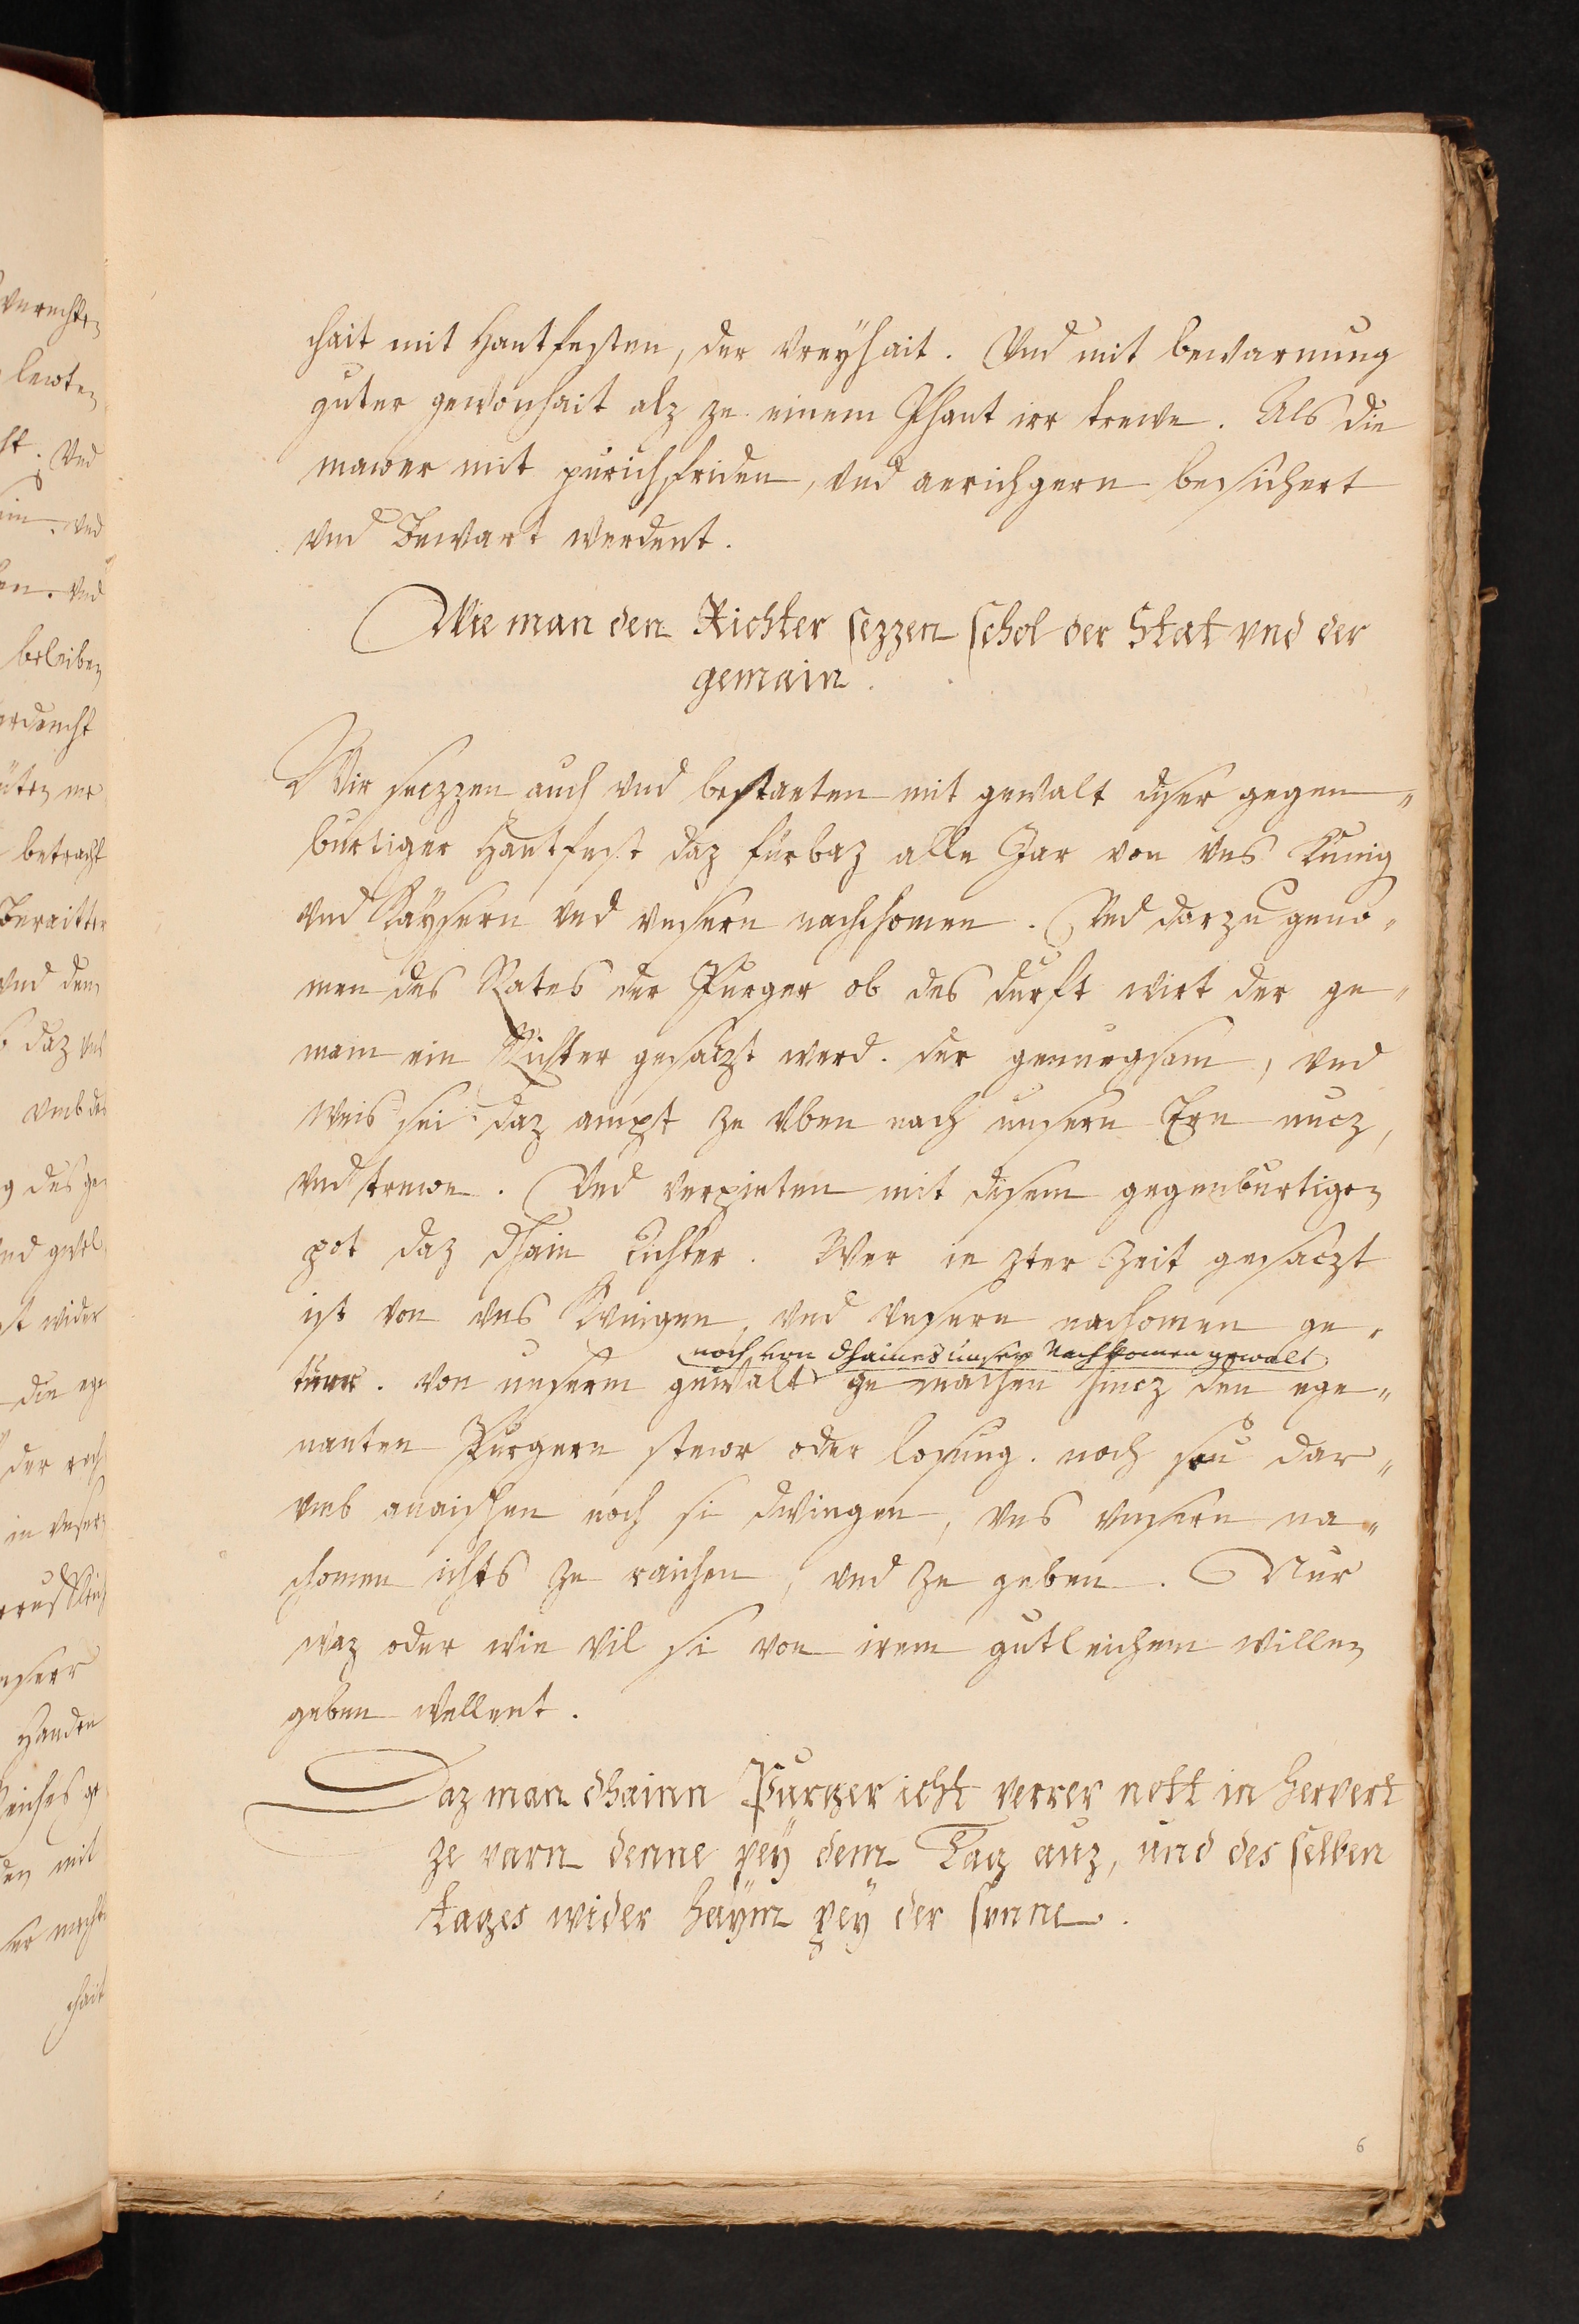 chait mit Hantfesten, der vreyhait. Vnd mit bewarnung
guter gewonhait alz ze einem Phant irr trewe. Als die
mawer mit purichfriden, vnd aerichgern besichert
vnd Bewart werdent.
Wie man den Richter sezzen schol der Stat vnd der
gemain.
Wir seczzen auch vnd bestaeten mit gewalt diser gegen„
burtiger Hantfest daz fürbaz alle Jar von vns Kunig
vnd Kaysern vnd vnsern nachchomen. Vnd darzu geno„
men des Rates der Purger ob des durft wirt der ge„
mein ein Richter gesaczt werd. der genuegsam, vnd
weis sei daz ampt ze vben nach unsern Ern nucz,
vnd trewe. Vnd verpieten mit disem gegenburtigen
pot daz dhain Richter. Wer in zter Zeit gesaczt
ist von vns Kunigen, vnd vnsern nachomen ge„
noch von dhaines unsers Nachkomen gewalt
turr. von unserm gewalt ze machen hincz den ege„
nanten Purgern stewr oder losung. noch seu dar„
vmb anaischen noch si dwingen, vns vnsern na„
chomen ichts ze raichen, vnd ze geben. Nur
waz oder wie vil si von irem gutleichem willen
geben wellent.
Daz man dhainn Purger icht verrer nott in hervert
ze varn denne pey dem Tag auz, und des selben
tages wider haym pey der sunne.
6